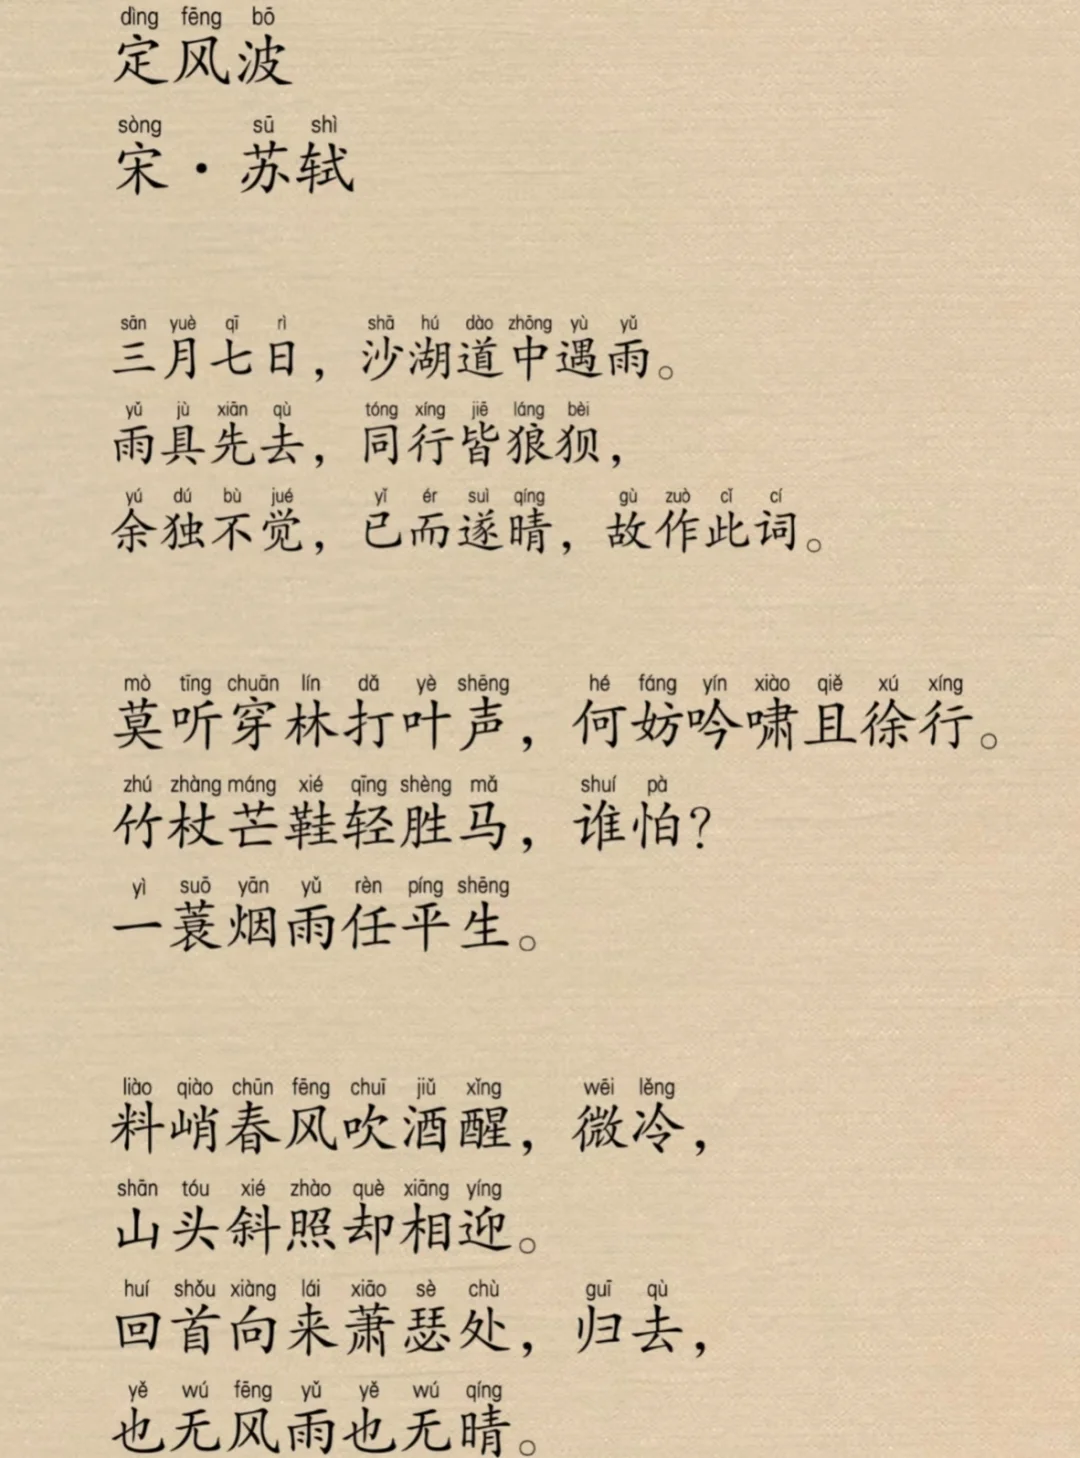 dìng fēng bō
定风波
sòng sū shì
宋·苏轼
sān yuè qī rì shā hú dào zhōng yù yǔ
三月七日，沙湖道中遇雨。
yǔ jù xiān qù tóng xíng jiē láng bèi
雨具先去，同行皆狼狈，
yú dú bù jué yǐ ér suì qíng gù zuò cǐ cí
余独不觉，已而遂晴，故作此词。
mò tīng chuān lín dǎ yè shēng hé fáng yín xiào qiě xú xíng
莫听穿林打叶声，何妨吟啸且徐行。
zhú zhàng máng xié qīng shèng mǎ shuí pà
竹杖芒鞋轻胜马，谁怕？
yì suō yān yǔ rèn píng shēng
一蓑烟雨任平生。
liào qiào chūn fēng chuī jiǔ xǐng wēi lěng
料峭春风吹酒醒，微冷，
shān tóu xié zhào què xiāng yíng
山头斜照却相迎。
huí shǒu xiàng lái xiāo sè chù guī qù
回首向来萧瑟处，归去，
yě wú fēng yǔ yě wú qíng
也无风雨也无晴。